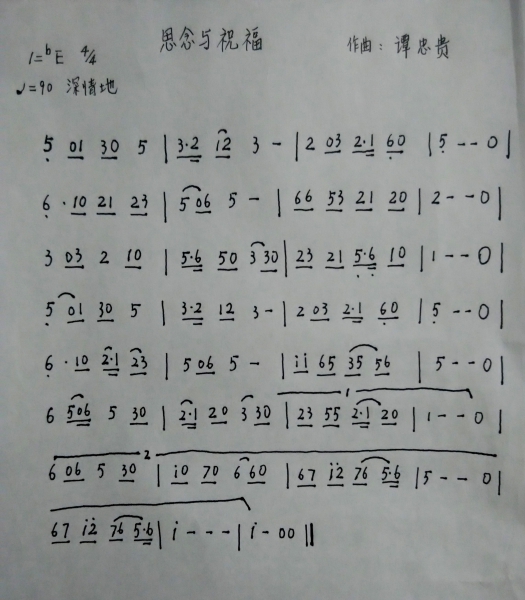 思念与祝福 作曲：谭忠贵
1=ᵇE 4/4
♩=90 深情地
5 01 30 5 | 3·2 12 3 - | 2 03 2·1 60 | 5 - - 0 |
6 · 10 21 23 | 5 06 5 - | 66 53 21 20 | 2 - - 0 |
3 03 2 10 | 5·6 50 3 30 | 23 21 5·6 10 | 1 - - 0 |
5 01 30 5 | 3·2 12 3 - | 2 03 2·1 60 | 5 - - 0 |
6 · 10 2·1 23 | 5 06 5 - | i̇i̇ 65 35 56 | 5 - - 0 |
1
6 506 5 30 | 2·1 20 3 30 | 23 55 2·1 20 | 1 - - 0 |
2
6 06 5 30 | i̇0 70 6 60 | 67 i̇2̇ 76 5·6 | 5 - - 0 |
67 i̇2̇ 76 5·6 | i̇ - - - | i̇ - 00 ‖